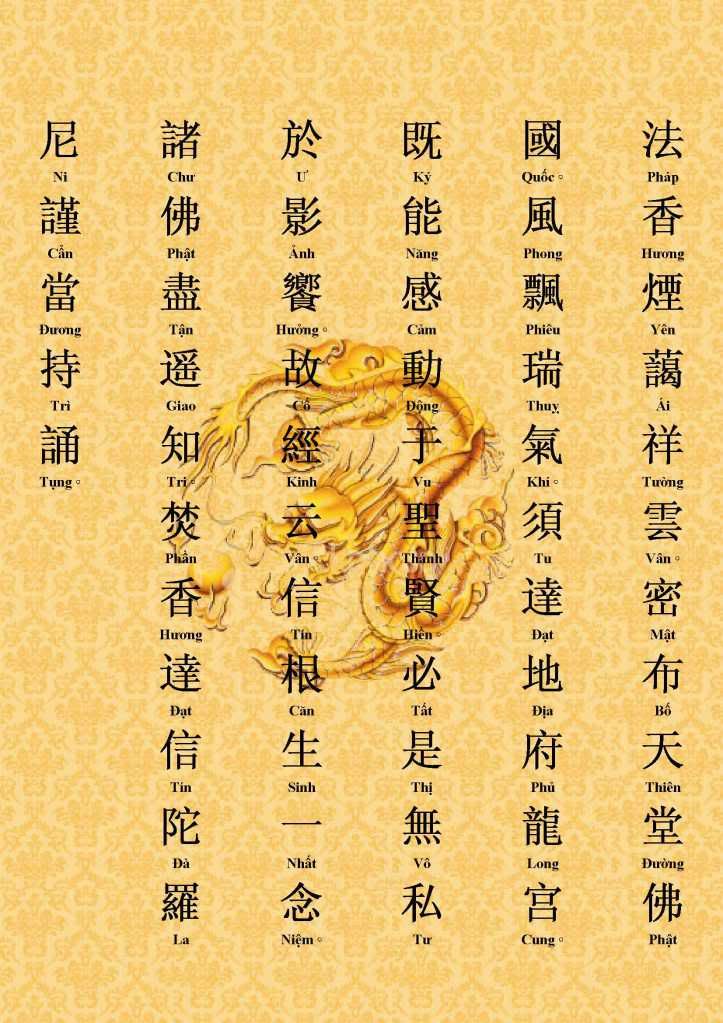 法香煙藹祥雲密布天堂佛
Pháp Hương Yên Ái Tường Vân。 Mật Bố Thiên Đường Phật
國風飄瑞氣須達地府龍宮
Quốc。 Phong Phiêu Thuỵ Khí。 Tu Đạt Địa Phủ Long Cung。
既能感動于聖賢必是無私
Ký Năng Cảm Động Vu Thánh Hiền。 Tất Thị Vô Tư
於影饗故經云信根生一念
Ư Ảnh Hưởng。 Cố Kinh Vân。 Tín Căn Sinh Nhất Niệm。
諸佛盡遥知焚香達信陀羅
Chư Phật Tận Giao Tri。 Phần Hương Đạt Tín Đà La
尼謹當持誦
Ni Cẩn Đương Trì Tụng。